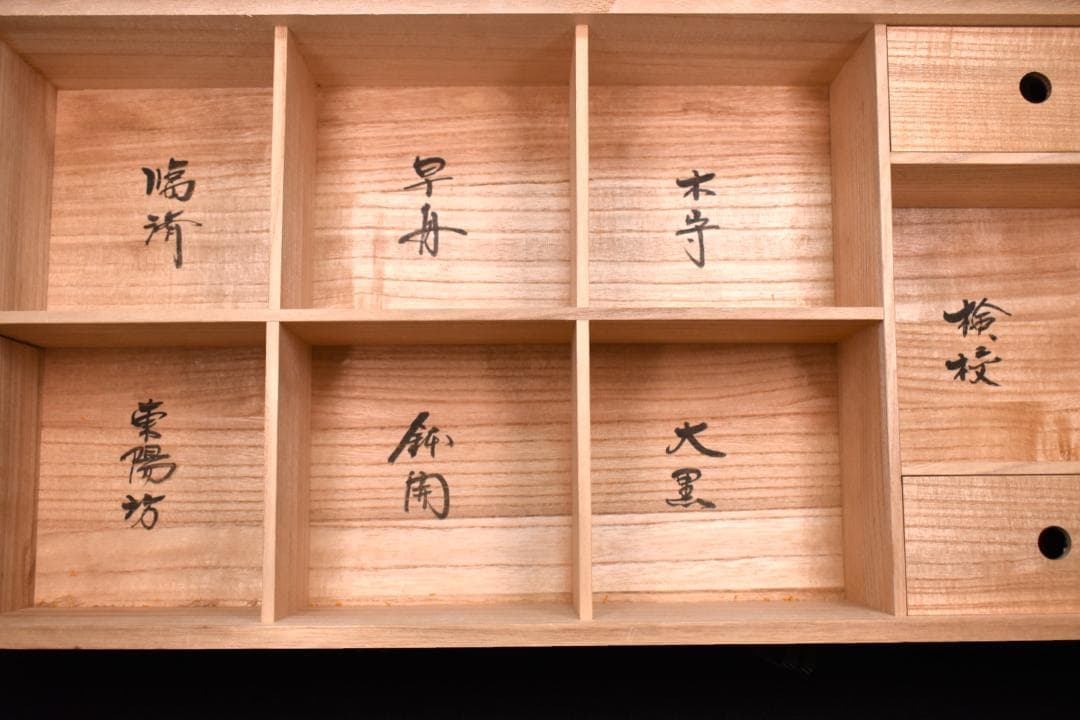 検校
木守
早舟
臨済
大黒
鉢開
東陽坊